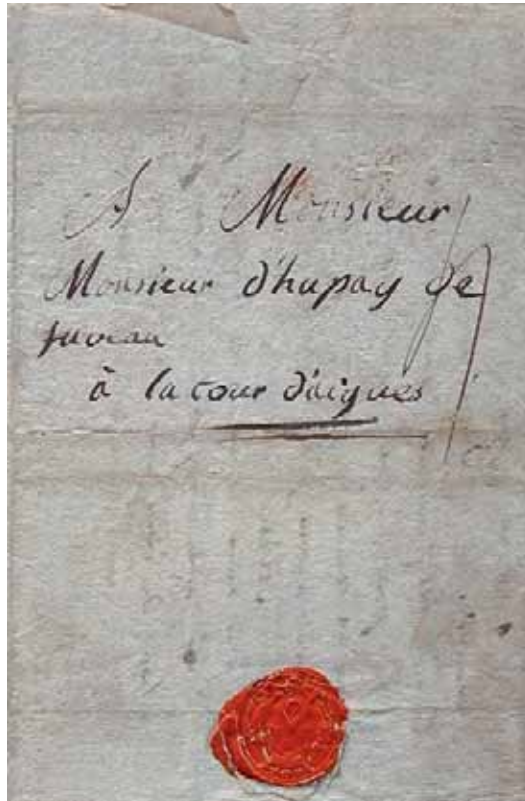 A Monsieur
Monsieur d'hupay de
fuveau
à la cour d'aigues